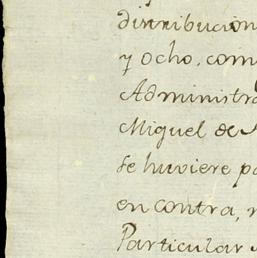 distribucion
y ocho, com
Administra
Miguel de
se huviere p
en contra,
Particular